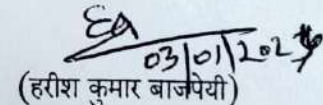 03/01/202
(हरीश कुमार बाजपेयी)